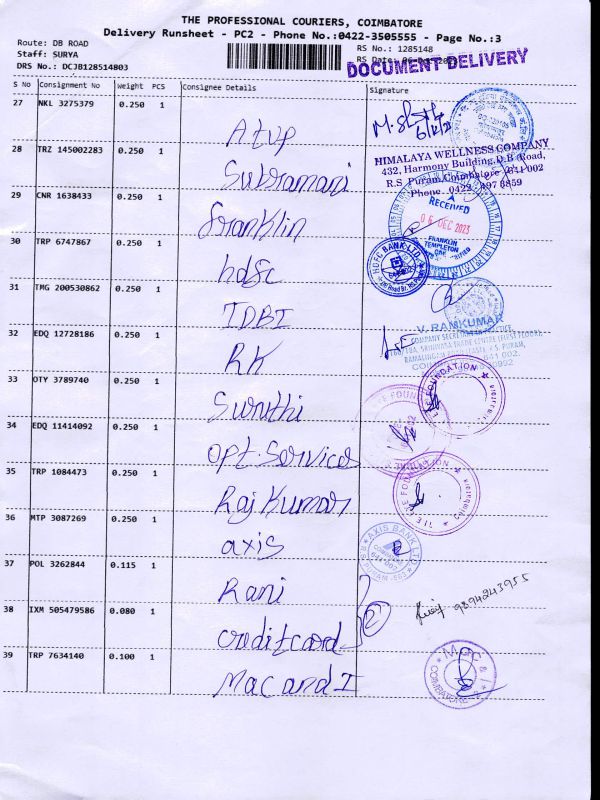 THE PROFESSIONAL COURIERS, COIMBATORE
Delivery Runsheet - PC2 - Phone No.:0422-3505555 - Page No.:3
Route: DB ROAD
Staff: SURYA
DRS No.: DCJB128514803
RS No.: 1285148
RS Date:
DOCUMENT DELIVERY
S No Consignment No Weight PCS Consignee Details Signature
27 NKL 3275379 0.250 1
28 TRZ 145002283 0.250 1 Subramani
HIMALAYA WELLNESS COMPANY
432, Harmony Building, D.B.Road,
R.S. Puram, Coimbatore - 641 002
Phone : 0422
29 CNR 1638433 0.250 1 franklin
RECEIVED
06 DEC 2023
FRANKLIN
TEMPLETON
30 TRP 6747867 0.250 1 hdfc
HDFC BANK LTD.
31 TMG 200530862 0.250 1 IDBI
V. RAMKUMAR
COMPANY SECRETARY
32 EDQ 12728186 0.250 1 RK
33 OTY 3789740 0.250 1
FOUNDATION
34 EDQ 11414092 0.250 1 opt. Services
35 TRP 1084473 0.250 1 Raj Kumar
FOUNDATION
36 MTP 3087269 0.250 1 axis
AXIS BANK LTD
R S PURAM
37 POL 3262844 0.115 1 Rani
38 IXM 505479586 0.080 1 creditcard
2
9894243955
39 TRP 7634140 0.100 1 Mac and I
COIMBATORE